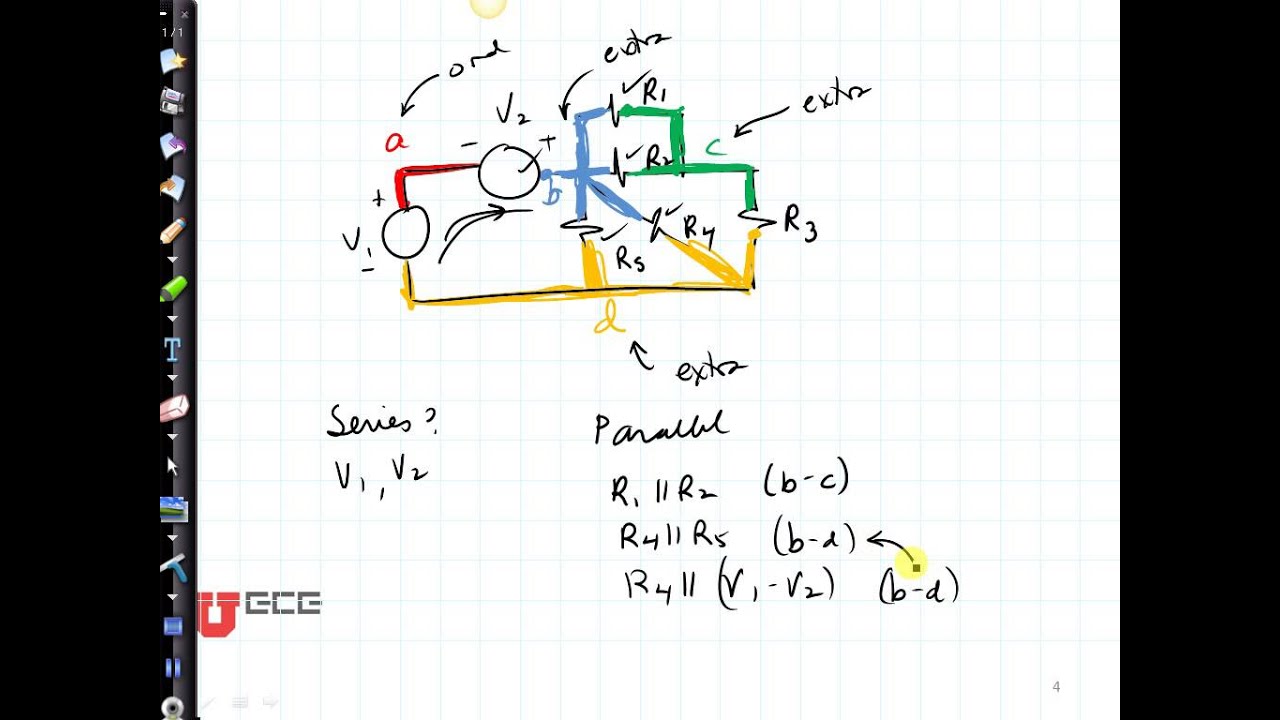 1/1
ord
extra
extra
a
V2
- +
R1
R2
c
b
+
V1
-
R5
R4
R3
d
extra
Series?
V1, V2
Parallel
R1 || R2 (b-c)
R4 || R5 (b-d)
R4 || (V1-V2) (b-d)
U ECE
4
T